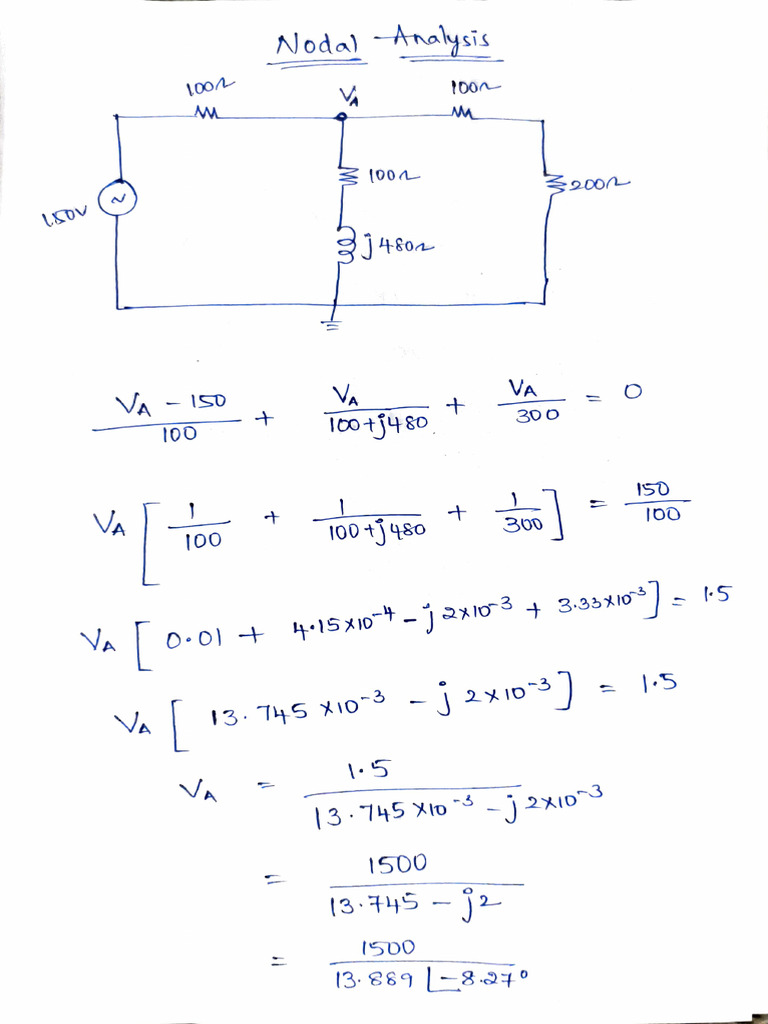 Nodal Analysis
100Ω VA 100Ω
100Ω 200Ω
150V ~
j480Ω
VA - 150 / 100 + VA / 100+j480 + VA / 300 = 0
VA [ 1/100 + 1/100+j480 + 1/300 ] = 150/100
VA [ 0.01 + 4.15×10^-4 - j 2×10^-3 + 3.33×10^-3 ] = 1.5
VA [ 13.745 ×10^-3 - j 2×10^-3 ] = 1.5
VA = 1.5 / 13.745 ×10^-3 - j 2×10^-3
= 1500 / 13.745 - j2
= 1500 / 13.889 ∠-8.27°